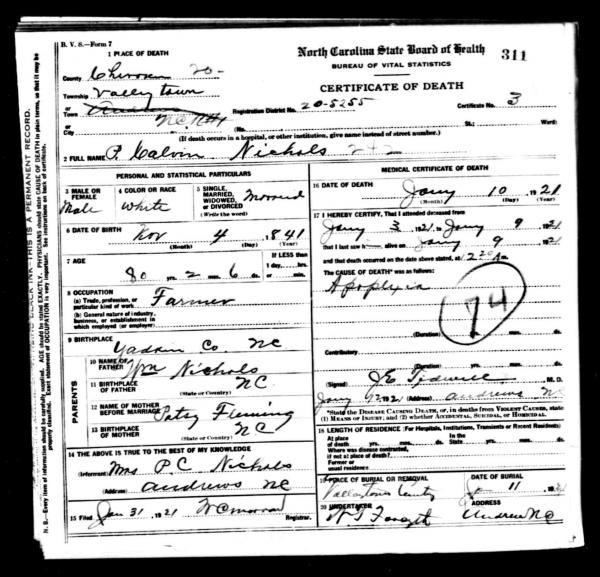 B. V. S.—Form 7
North Carolina State Board of Health 311
BUREAU OF VITAL STATISTICS
CERTIFICATE OF DEATH
1 PLACE OF DEATH
County 20-
Township Valleytown
or
Town N.C.
or
City (No. St.; Ward)
Registration District No. 20-5255 Certificate No. 3
(If death occurs in a hospital, or other institution, give name instead of street number.)
2 FULL NAME P. Calvin Nichols
PERSONAL AND STATISTICAL PARTICULARS
3 MALE OR FEMALE Male
4 COLOR OR RACE White
5 SINGLE, MARRIED, WIDOWED, OR DIVORCED (Write the word)
6 DATE OF BIRTH Nov 4, 1841
(Month) (Day) (Year)
7 AGE If LESS than 1 day, hrs. or min.
80 yrs. 2 mos. 6 ds.
8 OCCUPATION
(a) Trade, profession, or particular kind of work Farmer
(b) General nature of industry, business, or establishment in which employed (or employer)
9 BIRTHPLACE Yadkin Co NC
PARENTS
10 NAME OF FATHER Wm Nichols
11 BIRTHPLACE OF FATHER NC
(State or Country)
12 NAME OF MOTHER BEFORE MARRIAGE Patsy Fleming
13 BIRTHPLACE OF MOTHER NC
(State or Country)
14 THE ABOVE IS TRUE TO THE BEST OF MY KNOWLEDGE
(Informant) Mrs P C Nichols
(Address) Andrews NC
15 Filed Jan 31, 1921 Registrar.
MEDICAL CERTIFICATE OF DEATH
16 DATE OF DEATH Jany 10 1921
(Month) (Day) (Year)
17 I HEREBY CERTIFY, That I attended deceased from
Jany 3 1921 to Jany 9 1921
that I last saw h alive on Jany 9 1921
and that death occurred on the date above stated, at
The CAUSE OF DEATH* was as follows:
Apoplexia
74
(Duration) yrs. mos. ds.
Contributory
(Duration) yrs. mos. ds.
(Signed) J E Tidwell M. D.
Jany 1921 (Address) Andrews N
*State the DISEASE CAUSING DEATH, or, in deaths from VIOLENT CAUSES, state (1) MEANS OF INJURY; and (2) whether ACCIDENTAL, SUICIDAL, or HOMICIDAL.
18 LENGTH OF RESIDENCE (For Hospitals, Institutions, Transients or Recent Residents)
At place of death yrs. mos. ds. In the State yrs. mos. ds.
Where was disease contracted, if not at place of death?
Former or usual residence
19 PLACE OF BURIAL OR REMOVAL DATE OF BURIAL
Valleytown 11 1921
20 UNDERTAKER ADDRESS
Forsyth Andrews NC